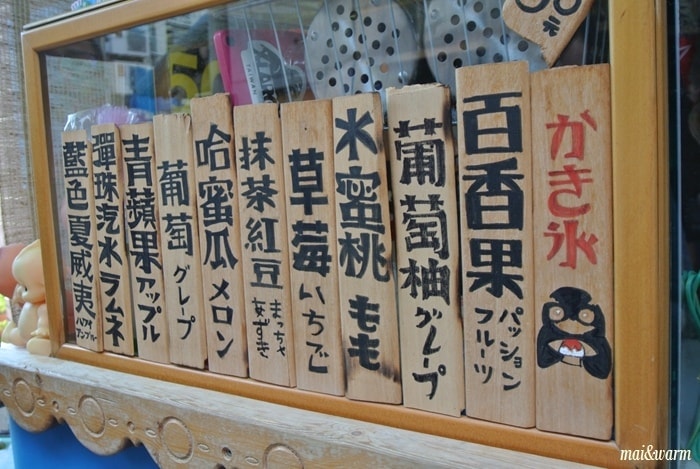 かき氷
百香果 パッションフルーツ
葡萄柚 グレープ
水蜜桃 もも
草莓 いちご
抹茶紅豆 まっちゃあずき
哈蜜瓜 メロン
葡萄 グレープ
青蘋果 アップル
彈珠汽水 ラムネ
藍色夏威夷
元
50
mai&warm